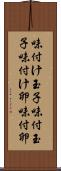 味付け玉子味付玉
子味付け卵味付卵